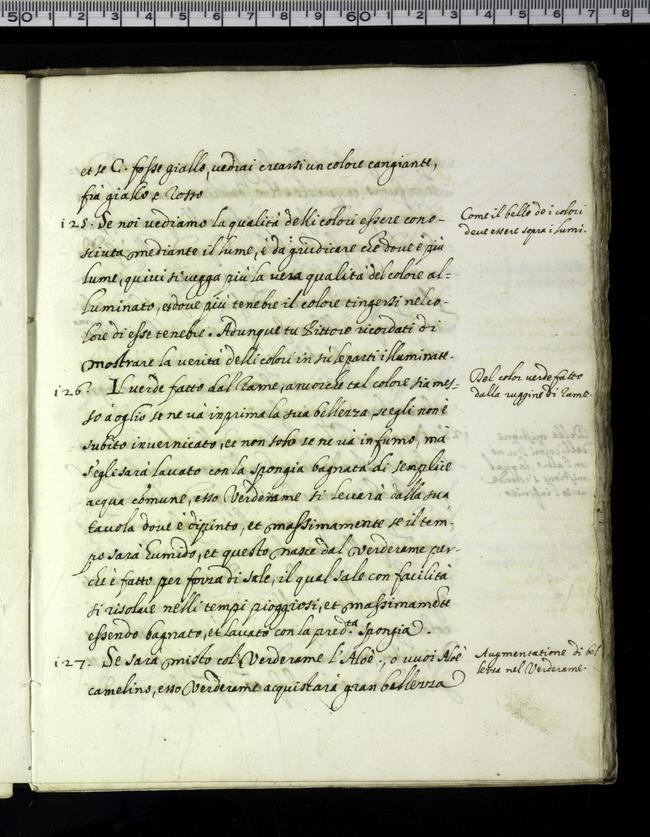 et se C. fosse giallo, vedrai crearsi un colore cangiante,
frà giallo e rosso
125. Se noi vediamo la qualità delli colori essere cono-
sciuta mediante il lume, è da giudicare che dove è più
lume, quivi si vegga più la vera qualità del colore al-
luminato, et dove più tenebre il colore tingersi nel co-
lore di esse tenebre. Adunque tu Pittore ricordati di
mostrare la verità delli colori in sù le parti illuminate.
Come il bello de i colori
deve essere sopra i lumi.
126. Il verde fatto dal Rame, ancorche tal colore sia mes-
so a oglio se ne và in prima la sua bellezza, se egli non è
subito invernicato, et non solo se ne và in fumo, mà
s'egli sarà lavato con la spongia bagnata di semplice
acqua comune, esso Verderame si leverà dalla sua
tavola dove è dipinto, et massimamente se il tem-
po sarà humido, et questo nasce dal verderame per-
che è fatto per forza di sale, il qual sale con facilità
si risolve nelli tempi pioggiosi, et massimamente
essendo bagnato, et lavato con la pred.ta spongia.
Del color verde fatto
dalla ruggine di rame.
127. Se sarà misto col Verderame l'Aloè, o vuoi Aloè
camelino, esso Verderame acquistarà gran bellezza
Augmentatione di bel
lezza nel Verderame.
50
60
1 2 3 4 5 6 7 8 9
1 2 3 4 5 6 7 8